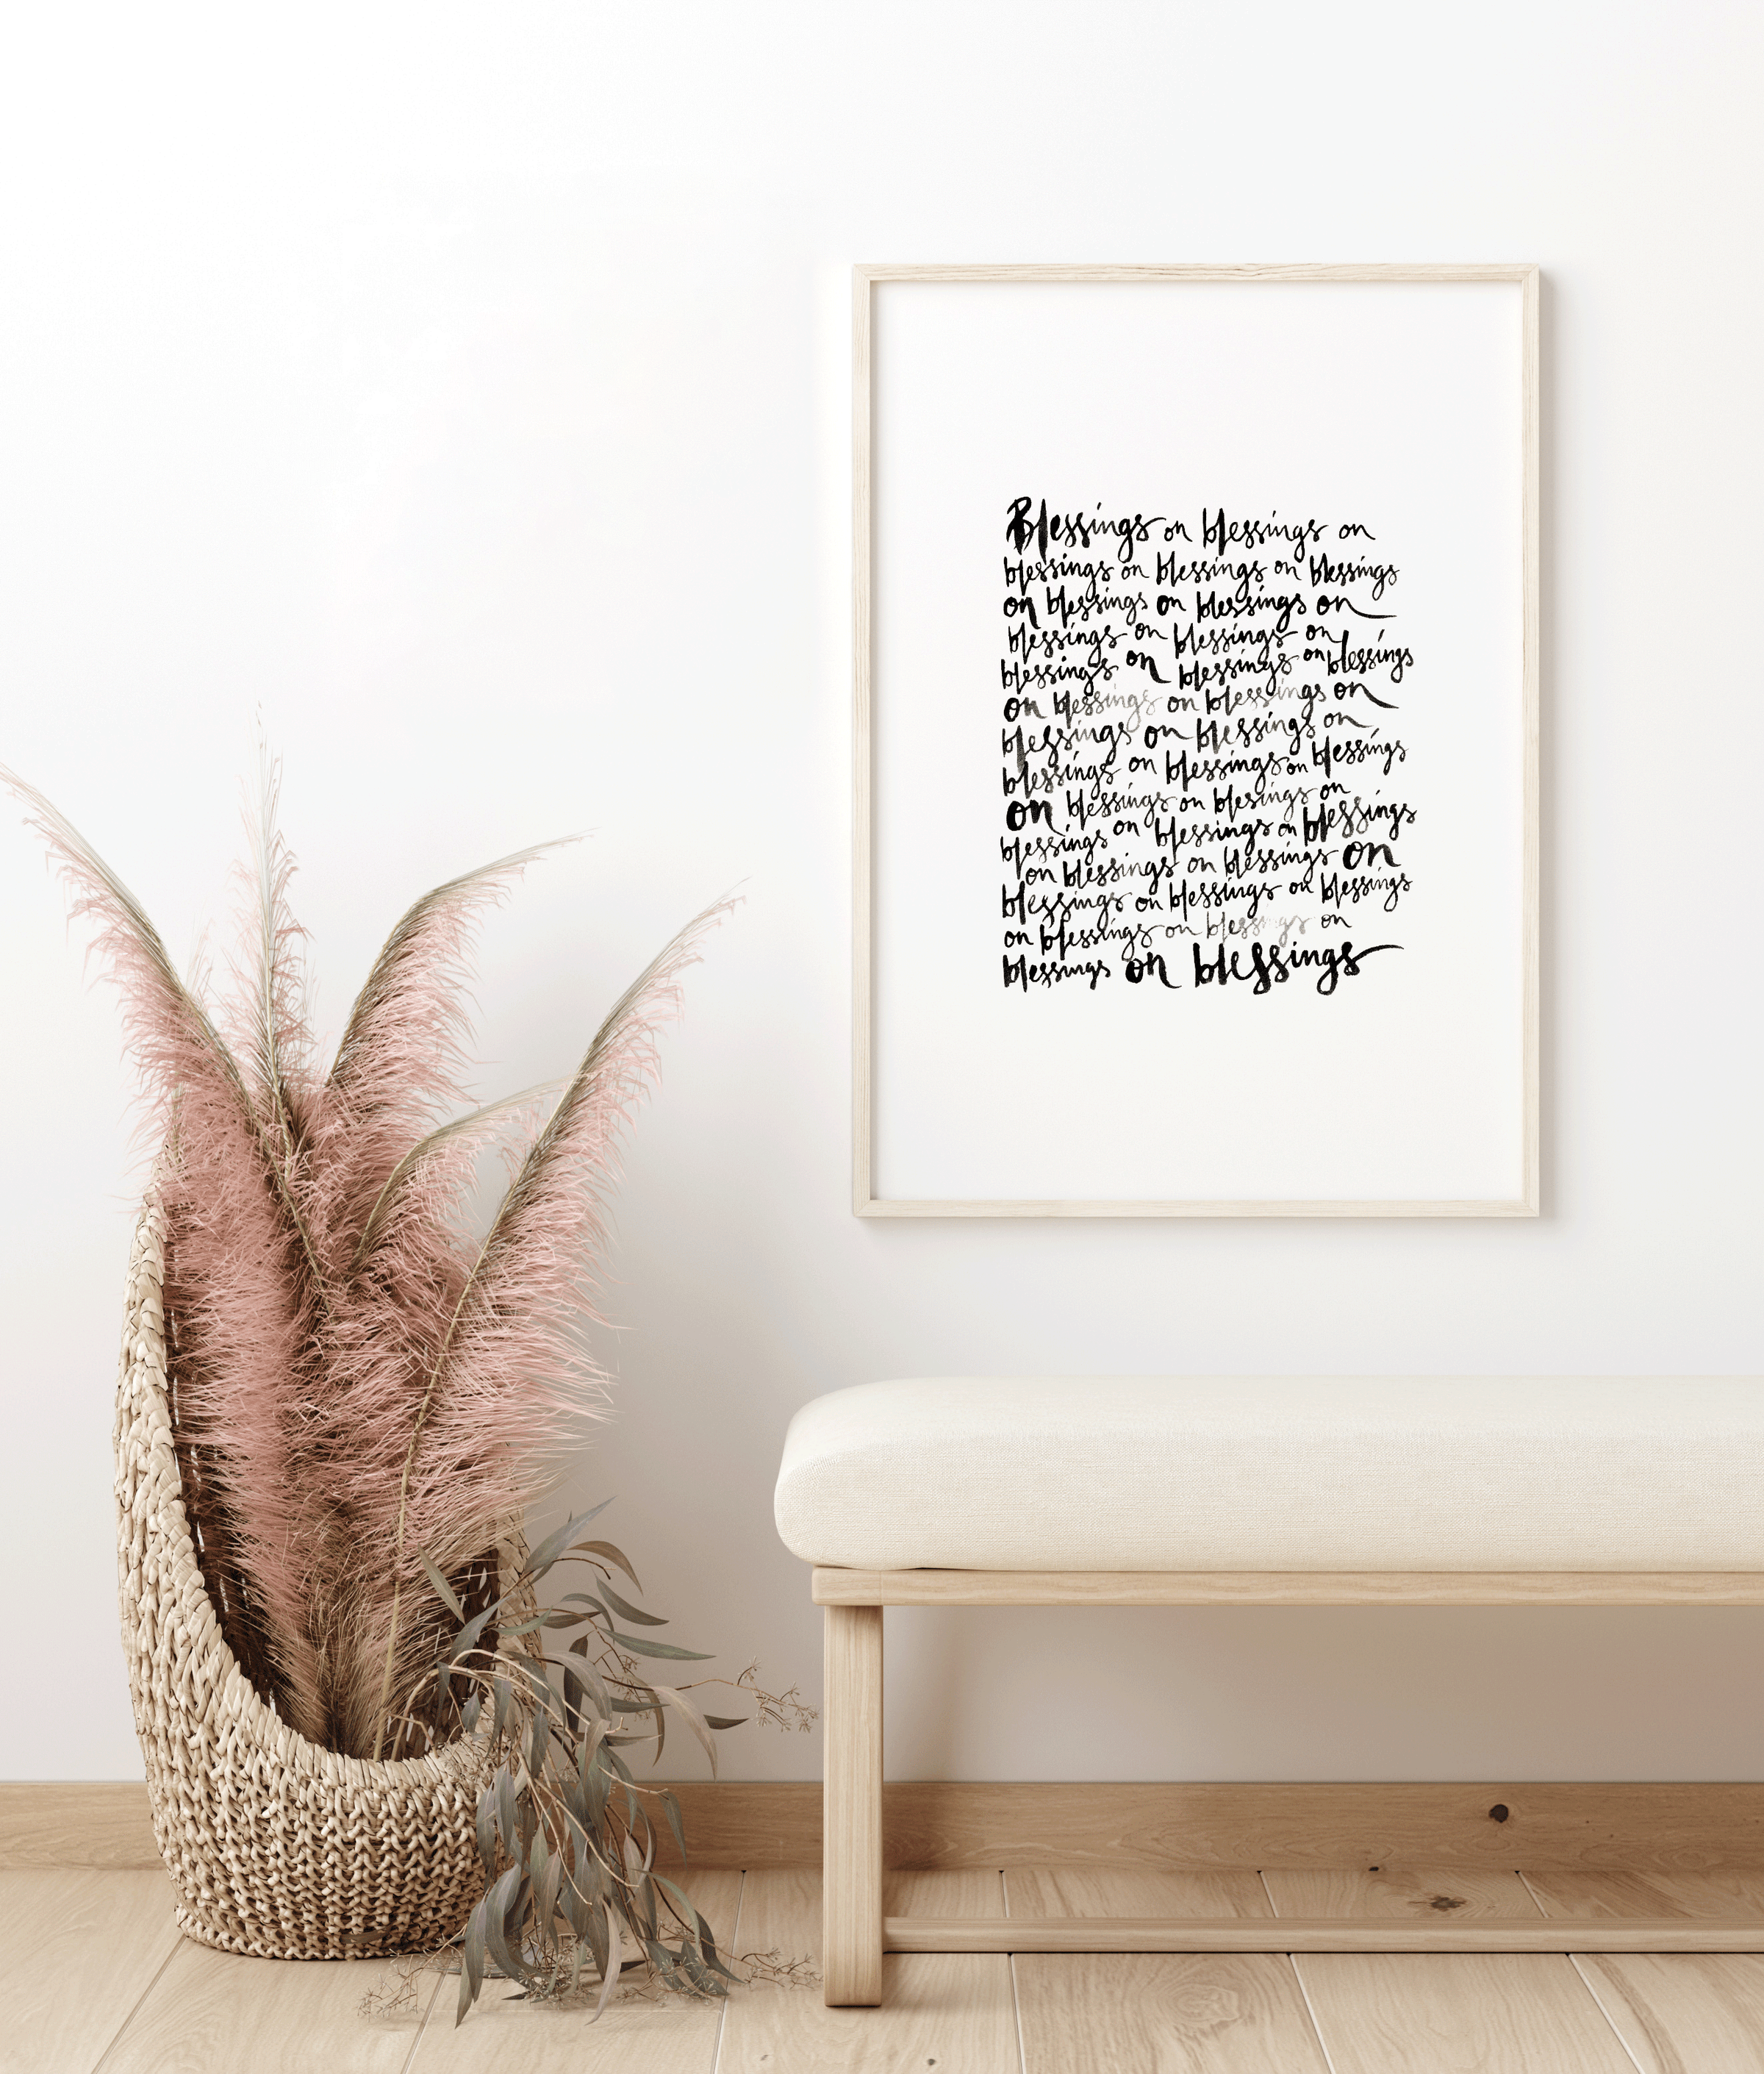 Blessings on blessings on
blessings on blessings on blessings
on blessings on blessings on
blessings on blessings on
blessings on blessings on blessings
on blessings on blessings on
blessings on blessings on
blessings on blessings on blessings
on blessings on blesings on
blessings on blessings on blessings
on blessings on blessings on
blessings on blessings on blessings
on blessings on blessings on
blessings on blessings